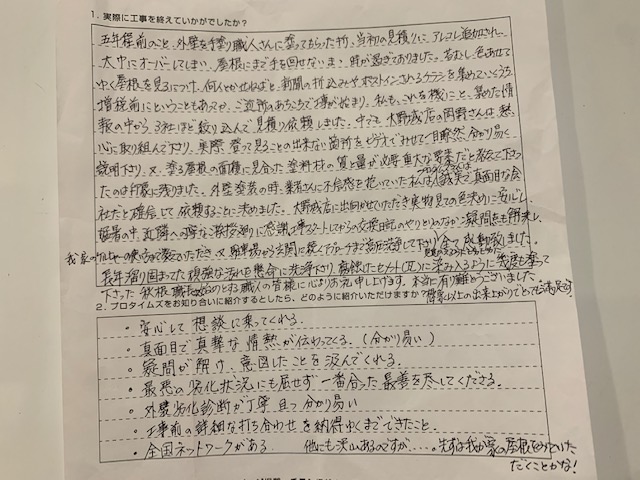 1. 実際に工事を終えていかがでしたか？
五年程前のこと、外壁を手塗り職人さんに塗ってもらった折、当初の見積りに、アレコレ追加され、
大巾にオーバーしてしまい、屋根にまで手を回せないまゝ時が過ぎておりました。苔むし、色あせて
ゆく屋根を見るにつけ、何とかせねばと、新聞の折込みやポストインされるチラシを集めていくうち
増税前にということもあってか、ご近所のあちこちで工事が始まり、私も、これを機にこと、集めた情
報の中から、3社ほど絞り込んで見積り依頼しました。中でも大野城店の岡野さんは、熱
心に取り組んで下り、実際、登って見ることの出来ない箇所をビデオでみせて一目瞭然、分かり易く
説明下り、又、塗る屋根の面積に見合った塗料材の質と量が必要重大な要素だと教えて下さっ
たのは印象に残りました。外壁塗装の時、業者さんに不信感を抱いていた私は、プロタイムズは誠実で真面目な会
社だと確信して依頼することに決めました。大野城店に出向かせていただき実物見ての色決めに安心し、
猛暑の中、近隣への丁寧なご挨拶廻りに感謝し、工事スタートしてからの交換日記のやりとりのなか、疑問をも解消し、
我家の
教えていただき、又、駐車場から玄関に続くアプローチまで高圧洗浄して下り、全て感動致しました。
長年溜り固まってた頑強な汚れを懸命に洗浄下り、
下さった秋根職長始めとする職人の皆様に心よりお礼申し上げます。本当に有り難とうございました。
想像以上の出来上がりでとっても満足です。
2. プロタイムズをお知り合いに紹介するとしたら、どのように紹介いただけますか？
・安心して想談に乗ってくれる。
・真面目で真摯な情熱が伝わってくる。（分かり易い）
・疑問が解け、意図したことを汲んでくれる。
・最悪の劣化状況にも屈せず一番合った最善を尽してくださる。
・外装劣化診断が丁寧且つ分かり易い
・工事前の詳細な打ち合わせを納得ゆくまでできたこと。
・全国ネットワークがある。 他にも沢山あるのですが・・・・。先ずは我が家の屋根をみていた
だくことかな！